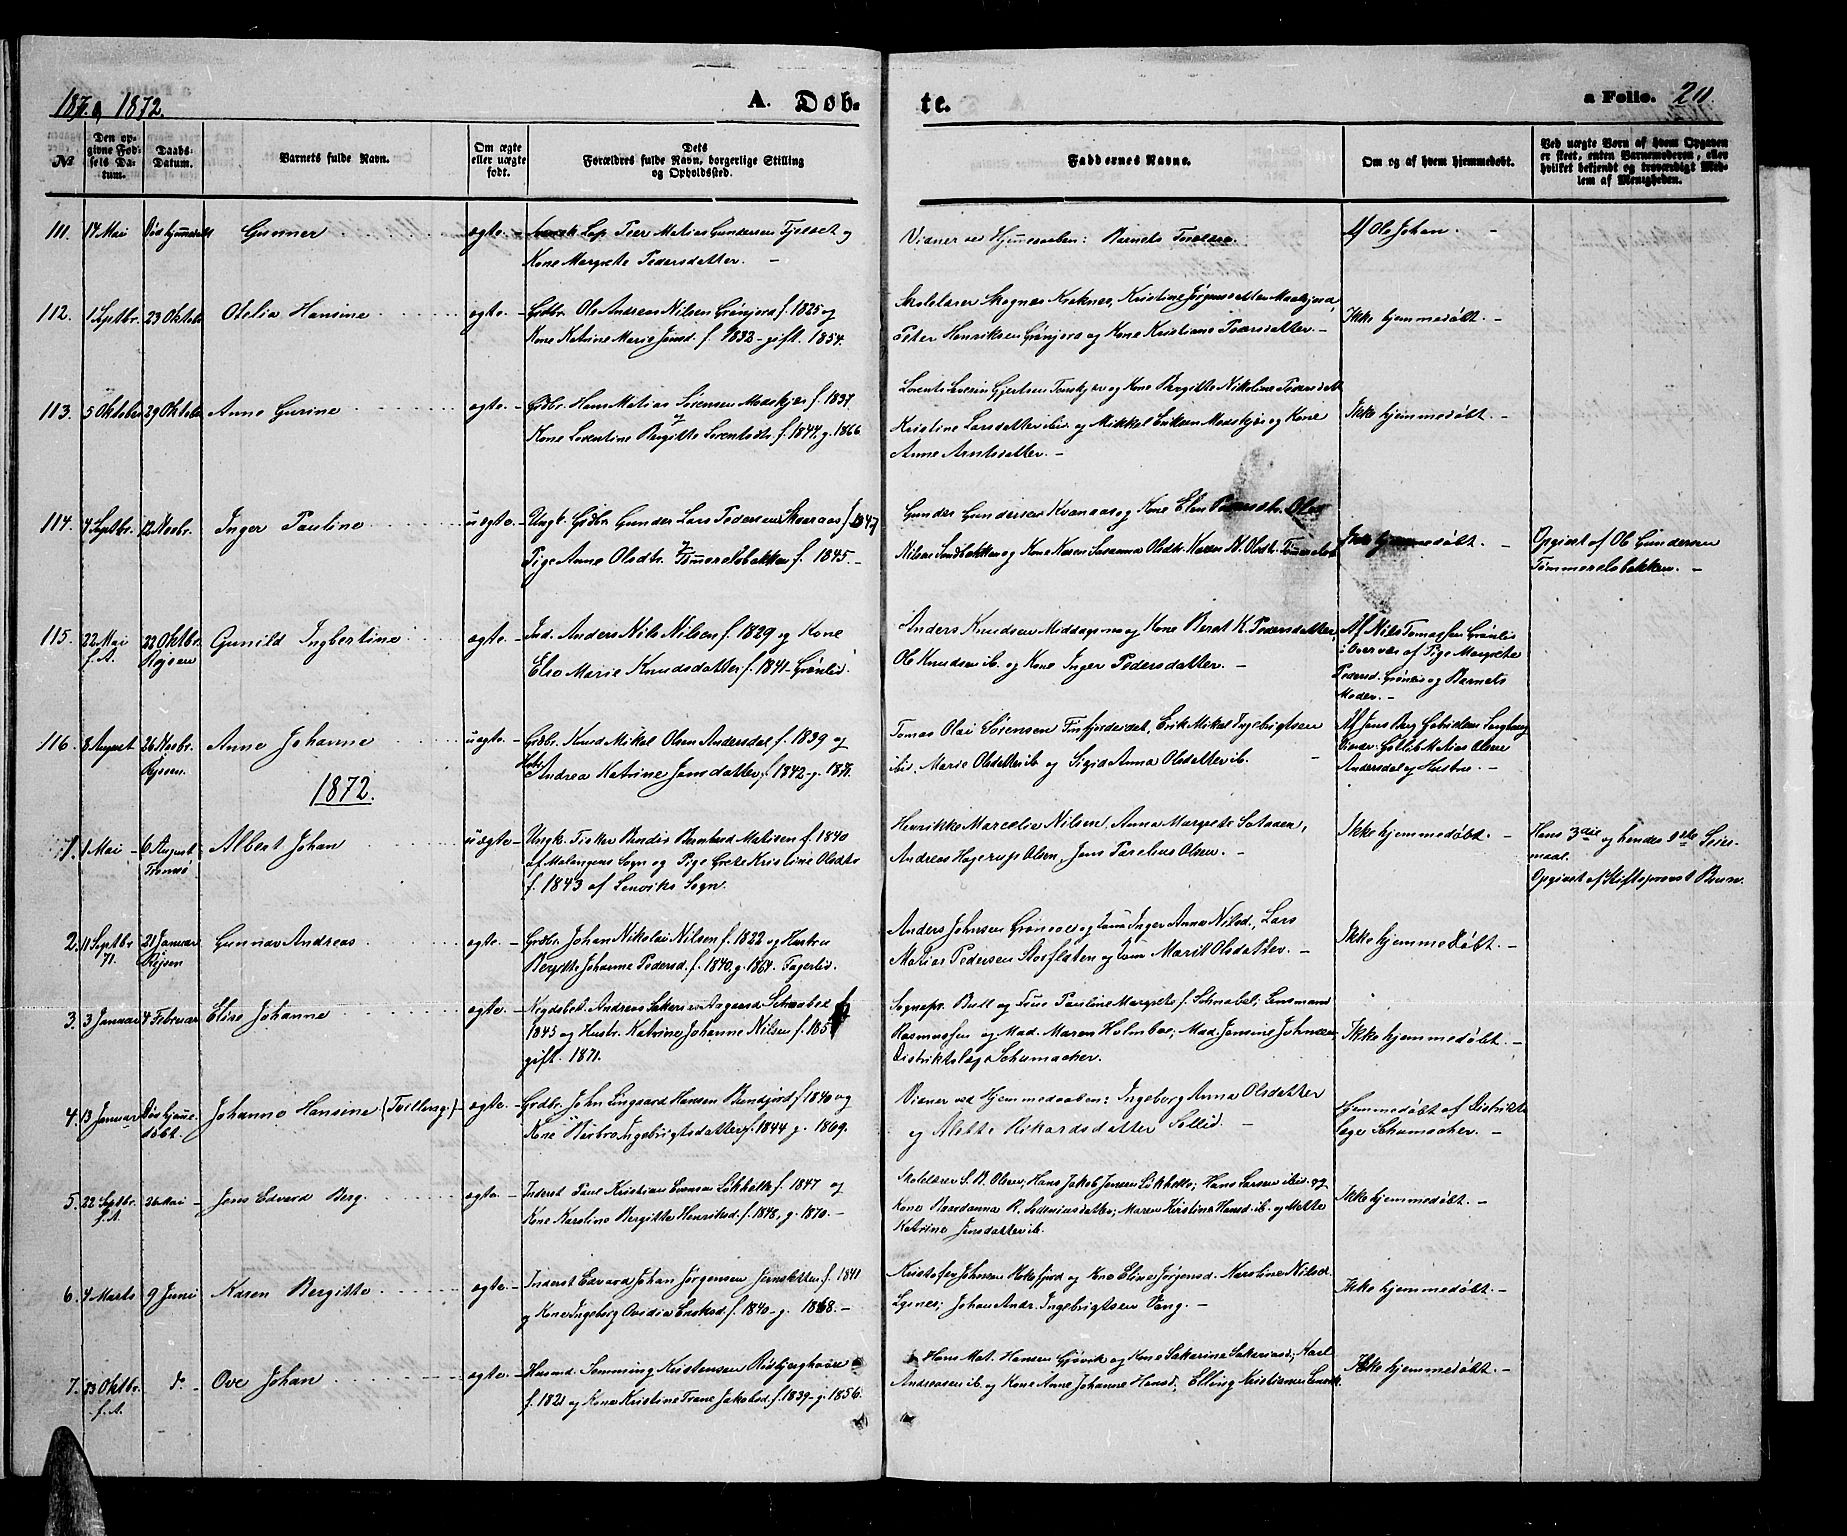 1871 og 1872.
A. Døb-
te.
a Folio. 20.
№
Den op-
givne Fød-
sels Da-
tum.
Daabs-
Datum.
Barnets fulde Navn.
Om ægte
eller uægte
født.
Dets
Forældres fulde Navn, borgerlige Stilling
og Opholdssted.
Faddernes Navne.
Om og af hvem hjemmedøbt.
Ved uægte Børn af hvem Opgaven
er skeet, enten Barnemoderen, eller
hvilket bekjendt og troværdigt Med-
lem af Menigheden.
111. 14 Mai Gunner ægte.
Lap Peer Matias Gundersen og
Kone Margrete Pedersdatter. —
Vidner ved Hjemmedaaben: Barnets Forældre.
Af Ole Johan. —
112. 1 Septbr. 23 Oktobr Otelia Hansine ægte.
Grdbr. Ole Andreas Nilsen Grønjord f. 1825 og
Kone Katrine Marie Jensd. f. 1832 - gift. 1854.
Skolelærer Mognes Kraknes, Kristine Jørgensdatter
Peter Henriksen Grønjord og Kone Kristiane Pedersdatter. —
Ikke hjemmedøbt. —
113. 5 Oktober 29 Oktobr Anne Gurine ægte.
Grdbr. Hans Matias Sørensen f. 1837
og
Kone Lorentine Bergitte Lorentsdtr. f. 1844, g. 1866.
Lorents Severin Gjertsen og Kone Bergitte Nikoline Pedersdat
Kristine Larsdatter ibid. og Mikkel Eriksen og Kone
Anne Arntsdatter. —
Ikke hjemmedøbt. —
114. 4 Septbr. 12 Novbr. Inger Pauline uægte.
Ungk. Grdbr. Gunder Lars Pedersen f. 1847
og
Pige Anne Olsdtr. Tømmerelvbakken f. 1845. —
Gunder Gundersen Kvanaas og Kone Elen Pedersdtr. Oluf
Nilsen Sandbakken og Kone Karen Susanna Olsdtr. Karen N. Olsdt.
Ikke hjemmedøbt. —
Opgivet af Ole Gundersen
Tømmerelvbakken. —
115. 22 Mai
f. A.
22 Oktbr.
Rejsen
Gunild Ingbertine ægte.
Ind. Anders Nils Nilsen f. 1829 og Kone
Else Marie Knudsdatter f. 1841 - Grønlid.
Anders Knudsen Middagsnes og Kone Berat K. Pedersdatter,
Ole Knudsen ib. og Kone Inger Pedersdatter. —
Af Nils Tomassen Grønlid
i Overvær af Pige Margrete
Pedersd. Grønlid og Barnets
Moder. —
116. 8 August 26 Novbr.
Rejsen.
Anne Johanne uægte.
Grdbr. Knud Mikal Olsen Andersdal f. 1839 og
Hstr. Andrea Katrine Jensdatter f. 1842 - g. 1871.
Tomas Olai Sørensen Finfjorddal, Erik Mikal Ingebrigtsen
ibid. Marie Olsdatter ib. og Sigid Anna Olsdatter ib. —
Af Jens Berg Gabrielsen
Vidner: Gotlib Matias Olsen
Andersdal og Hustru. —
1872.
1. 1 Mai 6 August
Tromsø
Albert Johan uægte.
Ungk. Fisker Bendix Bernhard Matisen f. 1840
af Malangens Sogn og Pige Grete Kristine Olsdtr
f. 1843 af Lenviks Sogn.
Henrikke Marcelie Nilsen, Anna Margrete
Andreas Hagerup Olsen, Jens Parelius Olsen. —
Ikke hjemmedøbt. —
Hans 3die og hendes 2det Leier-
maal.
Opgivet af Stiftsprovst Bruun.
2. 11 Septbr
71.
21 Januar
Rejsen
Gunnar Andreas ægte.
Grdbr. Johan Nikolai Nilsen f. 1822 og Hustru
Beryitte Johanne Pedersd. f. 1840, g. 1864. Fagerlid.
Anders Johnsen og Kone Inger Anna Nilsd., Lars
Matias Pedersen Storfloten og Kone Marit Olsdatter. —
Ikke hjemmedøbt. —
3. 3 Januar 4 Februar Elise Johanne ægte.
Andreas Aagaard Schnabel f.
1845 og Hustr. Katrine Johanne Nilsen f. 185
gift. 1871.
Sognepr. Bull og Frue Pauline Margrete f. Schnabel, Lensmand
Rasmussen og Mad. Maren Holmboe, Mad. Jensine Johnsen,
Distriktslæge Schumacher.
Ikke hjemmedøbt. —
4. 13 Januar Døv hjemme-
døbt.
Johanne Hansine (Tvillingsg.) ægte.
Grdbr. John Lingaard Hansen f. 1840 og
Kone Barbro Ingebrigtsdatter f. 1844 g. 1869.
Vidner ved Hjemmedaaben: Ingeborg Anna Olsdatter
og Alette Rikardsdatter Sollid. —
Hjemmedøbt af Distrikts
læge Schumacher. —
5. 22 Septbr.
f. A.
26 Mai Jens Edvard Berg. ægte.
Inderst Paul Kristian Evensen f. 1847 og
Kone Karoline Bergitte Henriksd. f. 1848, g. 1870. —
Skolelærer S. B. Olsen, Hans Jakob Jensen, Hans Larsen ibid. og
Kone, Maren Kristine Hansd. ib. og Mette
Katrine Jensdatter ib.
Ikke hjemmedøbt. —
6. 4 Marts 9 Juni Karen Bergitte ægte.
Inderst Edvard Johan Jørgensen f. 1841
og Kone Ingeborg Ovidia f. 1840 - g. 1868. —
Kristofer Johnsen og Kone Elise Jørgensd. Karoline Nilsd.
Lynes, Johan Andr. Ingebrigtsen Vang. —
Ikke hjemmedøbt. —
7. 13 Oktbr.
f. A.
d. Ove Johan ægte.
Husmd. Kristensen
f. 1821 og Kone Kristine Trane Jakobsd. f. 1839 - g. 1856.
Hans Mat. Hansen Gjøvik og Kone Sakarine Sakariasd., Karl
Andreassen ib. og Kone Anne Johanne Hansd., Elling Kristiansen
Ikke hjemmedøbt. —